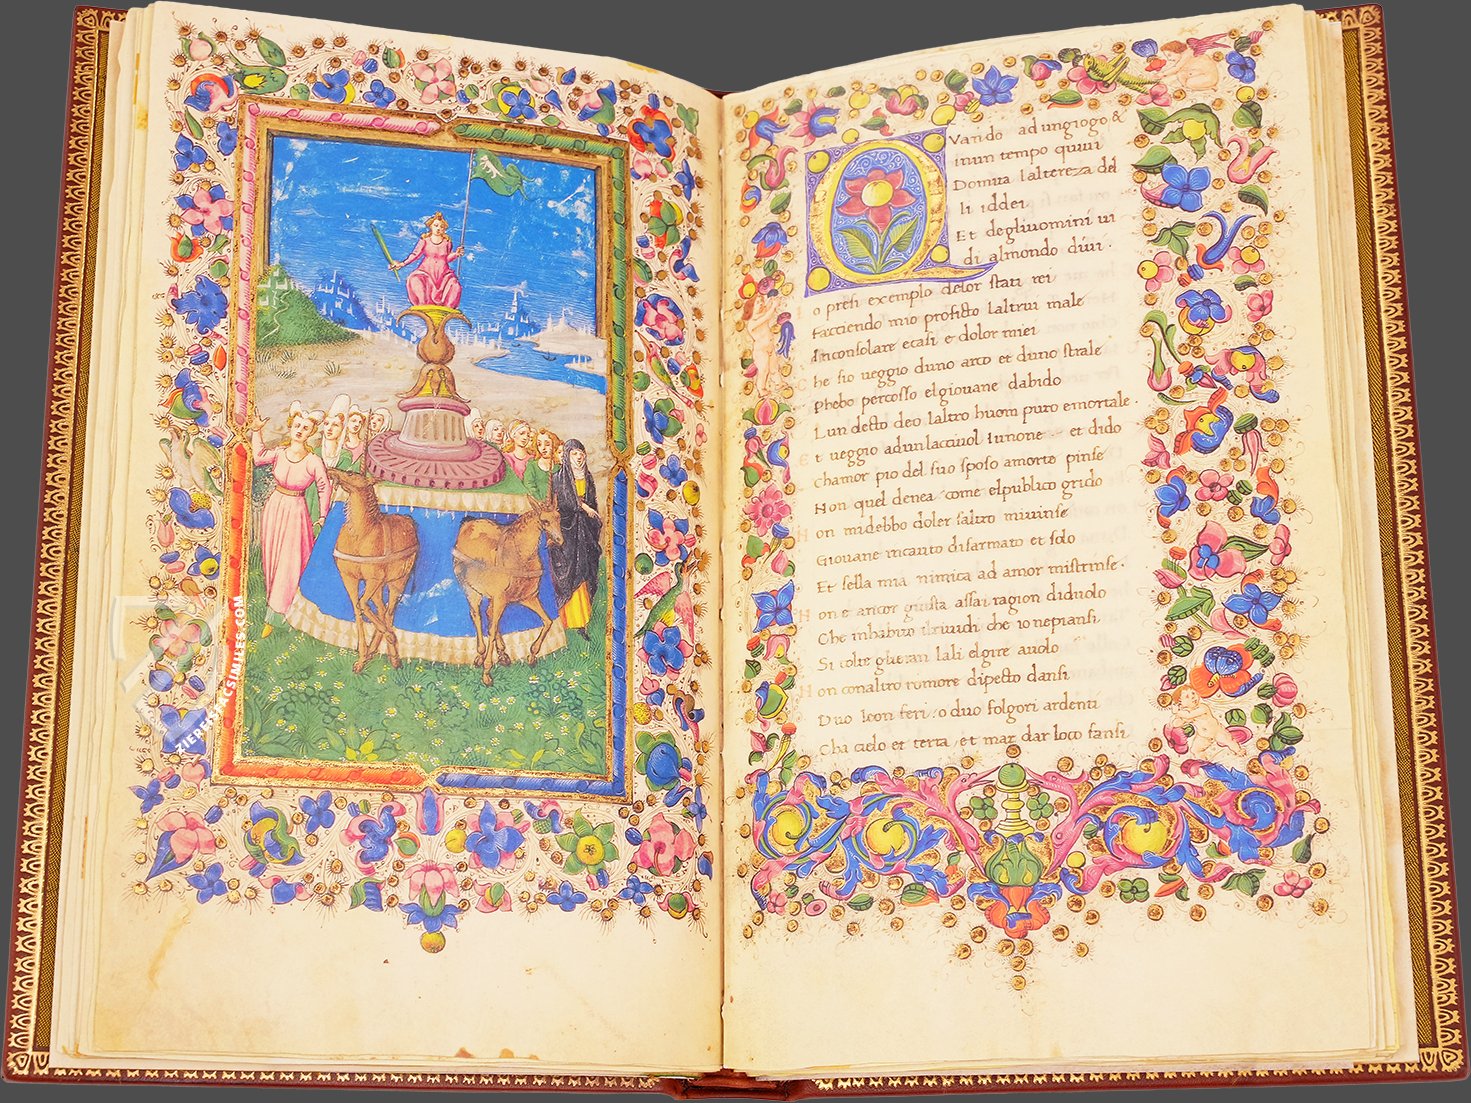 ZIEREIS FACSIMILES.COM
Quando ad un giogo &
inun tempo quiui
Domita laltereza del
li iddei
Et degliuomini ui
di almondo diui.
o presi exemplo delor stati rei
facciendo mio profitto laltrui male
Inconsolare ecasi e dolor miei
he sio ueggio duno arco et duno strale
Phebo percosso elgiouane dabido
Lun decto deo laltro huom puro emortale.
t ueggio adunlacciuol Iunone et dido
chamor pio del suo sposo amorte pinse
Non quel denea come elpublico grido
on midebbo doler saltro miuinse
Giouane incauto disarmato et solo
Et sella mia nimica ad amor nistrinse.
on e ancor giusta assai ragion diduolo
Che inhabito ilriuidi che io nepiansi
Si tolte gli eran lali elgire auolo
on conaltro romore dipecto dansi
Duo leon feri, o duo folgori ardenti
Cha cielo et terra, et mar dar loco fansi